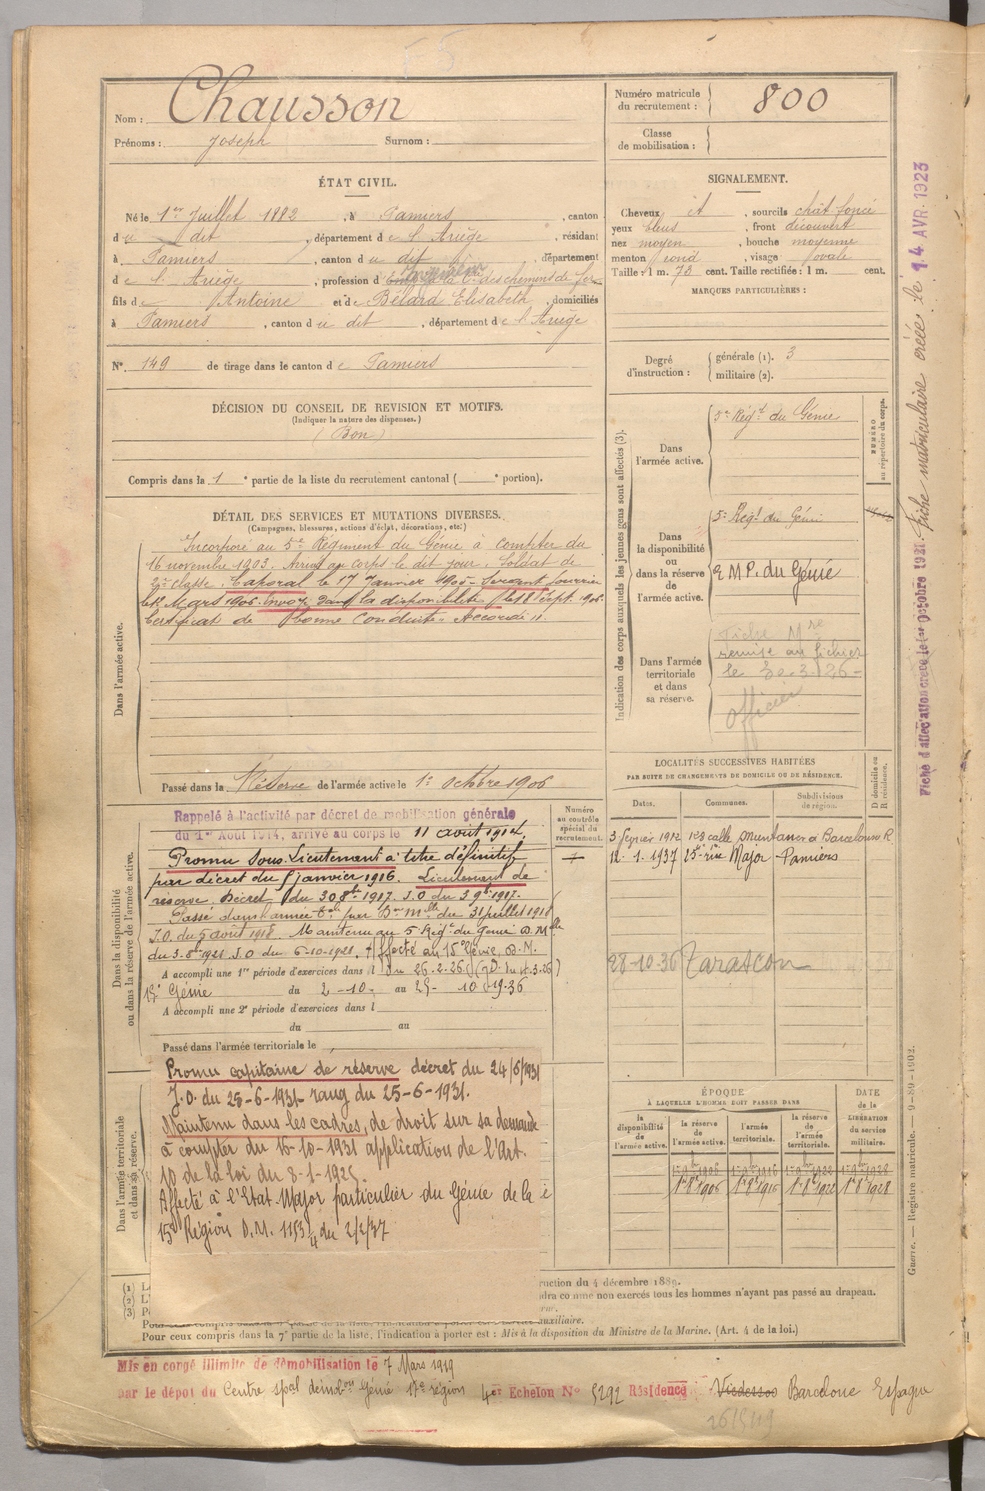 Nom : Chausson
Prénoms : Joseph Surnom :
ÉTAT CIVIL.
Né le 1er Juillet 1882, à Pamiers, canton
du dit, département de l'Ariège, résidant
à Pamiers, canton du dit, département
de l'Ariège, profession d des chemins de fer
fils de Antoine et de Bélard Elisabeth, domiciliés
à Pamiers, canton du dit, département de l'Ariège
N° 149 de tirage dans le canton de Pamiers
DÉCISION DU CONSEIL DE REVISION ET MOTIFS.
(Indiquer la nature des dispenses.)
(Bon)
Compris dans la 1e partie de la liste du recrutement cantonal ( e portion).
DÉTAIL DES SERVICES ET MUTATIONS DIVERSES.
(Campagnes, blessures, actions d'éclat, décorations, etc.)
Dans l'armée active.
Incorporé au 5e Régiment du Génie à compter du
16 novembre 1903. Arrivé au corps le dit jour. Soldat de
2e classe. Caporal le 17 Janvier 1905. Sergent fourrier
le 1er Mars 1906. Envoyé dans la disponibilité le 18 Sept. 1906
Certificat de Bonne Conduite "Accordé".
Passé dans la Réserve de l'armée active le 1er octobre 1906
Dans la disponibilité
ou dans la réserve de l'armée active.
Rappelé à l'activité par décret de mobilisation générale
du 1er Août 1914, arrivé au corps le 11 août 1914.
Promu Sous-Lieutenant à titre définitif
par décret du janvier 1916. Lieutenant de
réserve, Décret du 30 8bre 1917. J.O du 3 9bre 1917.
Passé dans armée tale par Don Mlle du 31 juillet 1918
J.O. du 5 août 1918. Maintenu au 5 Régt du Génie D. Mlle
du 3.8bre 1921 J.O du 6-10-1921. Affecté au 15e Génie, D.M.
A accompli une 1re période d'exercices dans l du 26.2.26
15e Génie du 2-10- au 25-10-1936
A accompli une 2e période d'exercices dans l
du au
Passé dans l'armée territoriale le
Numéro
au contrôle
spécial du
recrutement.
Dans l'armée territoriale
et dans sa réserve.
Promu capitaine de réserve décret du 24/6/1931
J.O. du 25-6-1931 rang du 25-6-1931.
Maintenu dans les cadres, de droit sur sa demande
à compter du 16-10-1931 application de l'Art.
10 de la loi du 8-1-1925.
Affecté à l'Etat-Major particulier du Génie de la
15e Région D.M. 1153/4 du 2/2/37
(1)
(2)
(3)
ruction du 4 décembre 1889.
dra comme non exercés tous les hommes n'ayant pas passé au drapeau.
auxiliaire.
Pour ceux compris dans la 7e partie de la liste, l'indication à porter est : Mis à la disposition du Ministre de la Marine. (Art. 4 de la loi.)
Mis en congé illimité de démobilisation le 7 Mars 1919
par le dépot du Centre spal démobon Génie 17e région 4er Echelon N° 5292 Résidence Vicdessos Barcelone Espagne
Numéro matricule
du recrutement : 800
Classe
de mobilisation :
SIGNALEMENT.
Cheveux ct, sourcils chât foncé
yeux bleus, front découvert
nez moyen, bouche moyenne
menton rond, visage ovale
Taille : 1 m. 78 cent. Taille rectifiée : 1 m. cent.
MARQUES PARTICULIÈRES :
Degré
d'instruction :
générale (1). 3
militaire (2).
Indication des corps auxquels les jeunes gens sont affectés (3).
NUMÉRO
au répertoire du corps.
Dans
l'armée active.
5e Régt du Génie
Dans
la disponibilité
ou
dans la réserve
de
l'armée active.
5e Régt du Génie
E M P. du Génie
Dans l'armée
territoriale
et dans
sa réserve.
Fiche Mre
remise au fichier
le 30-3-26-
officier
LOCALITÉS SUCCESSIVES HABITÉES
PAR SUITE DE CHANGEMENTS DE DOMICILE OU DE RÉSIDENCE.
Dates. Communes. Subdivisions
de région. D domicile ou
R résidence.
3 février 1912 123 calle Muntaner à Barcelone R
12-1-1937 25 rue Major Pamiers
28-10-36 Tarascon
ÉPOQUE
À LAQUELLE L'HOMME DOIT PASSER DANS
DATE
de la
LIBÉRATION
du service
militaire.
la
disponibilité
de
l'armée active.
la réserve
de
l'armée active.
l'armée
territoriale.
la réserve
de
l'armée
territoriale.
1er 9bre 1906 1er 9bre 1916 1er 9bre 1922 1er 9bre 1928
1er 8bre 1906 1er 8bre 1916 1er 8bre 1922 1er 8bre 1928
Fiche d'affectation créée le 1er Octobre 1921. Fiche matriculaire créée le 14 AVR. 1923
Guerre. — Registre matricule. — 9-89-1902.